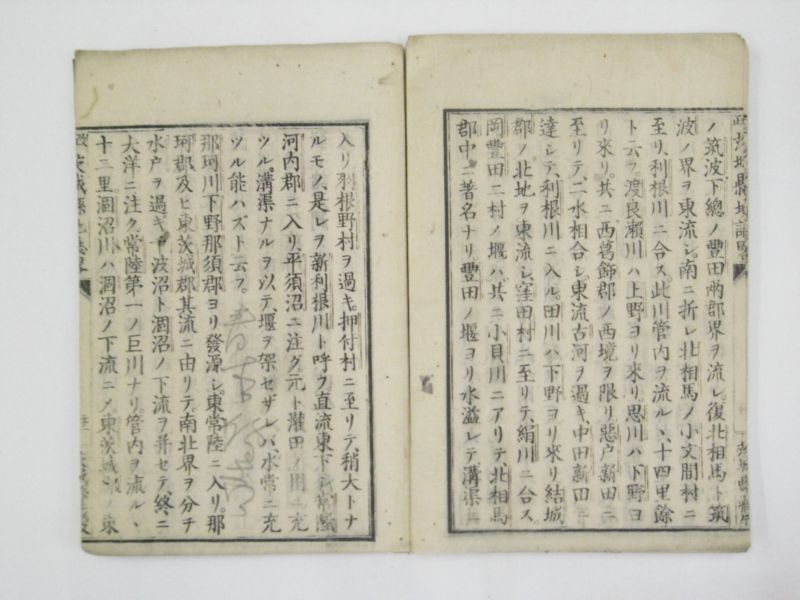 ノ筑波、下總ノ豐田兩郡界ヲ流レ。復北相馬ト筑
波ノ界ヲ東流シ、南ニ折レ北相馬ノ小文間村ニ
至リ、利根川ニ合ス。此川管内ヲ流ル丶、十四里餘
ト云フ。渡良瀬川ハ上野ヨリ來リ。思川ハ下野ヨ
リ來リ。共ニ西葛飾郡ノ西境ヲ限リ惡戸新田ニ
至リテ、二水相合シ、東流古河ヲ過キ、中田新田ニ
達シテ、利根川ニ入ル。田川ハ下野ヨリ來リ結城
郡ノ北地ヲ東流シ、窪田村ニ至リテ、絹川ニ合ス。
岡豐田二村ノ堰ハ、共ニ小貝川ニアリテ、北相馬
郡中ニ著名ナリ豐田ノ堰ヨリ水溢レテ溝渠ニ
入リ羽根野村ヲ過キ。押付村ニ至リテ、稍大トナ
ルモノ、是レヲ新利根川ト呼フ。直流東下
河内郡ニ入リ、平須沼ニ注グ。元ト灌田ノ用ニ充
ツル。溝渠ナルヲ以テ、堰ヲ架セザレバ、水常ニ充
ツル能ハズト云フ。
那珂川下野那須郡ヨリ發源シ、東常陸ニ入リ。那
珂郡及ヒ東茨城郡其流ニ由リテ、南北界ヲ分チ
水戸ヲ過キ千波沼ト涸沼ノ下流ヲ併セテ、終ニ
大洋ニ注ク。常陸第一ノ巨川ナリ。管内ヲ流ル丶
十二里。涸沼川ハ涸沼ノ下流ニメ東茨城郡ノ東
茨城縣地誌畧